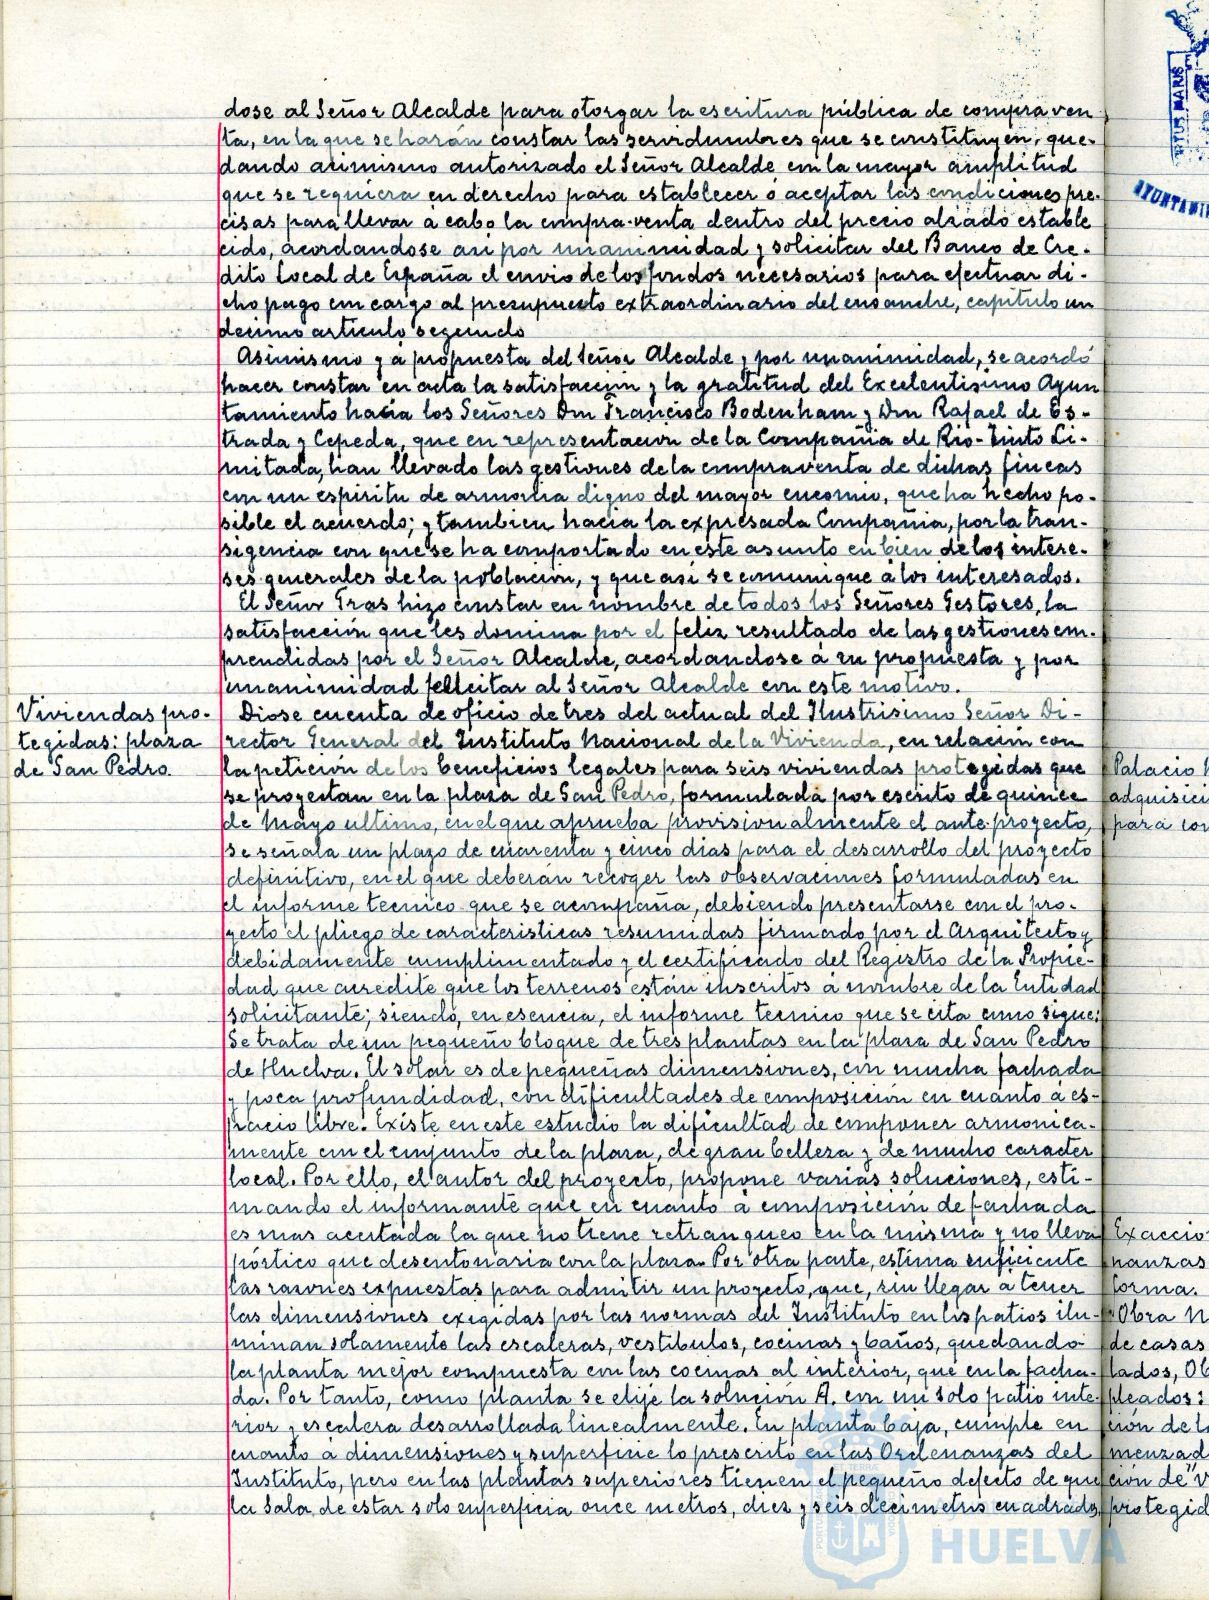 dose al Señor Alcalde para otorgar la escritura pública de compra ven
ta, en la que se harán constar las servidumbres que se constituyen, que-
dando asimismo autorizado el Señor Alcalde con la mayor amplitud
que se requiera en derecho para establecer ó aceptar las condiciones pre-
cisas para llevar á cabo la compra-venta dentro del precio alzado estable
cido, acordandose asi por unanimidad y solicitar del Banco de Cre-
dito Local de España el envio de los fondos necesarios para efectuar di-
cho pago con cargo al presupuesto extraordinario del ensanche, capitulo un
decimo articulo segundo
Asimismo y á propuesta del Señor Alcalde y por unanimidad, se acordó
hacer constar en acta la satisfacción y la gratitud del Excelentisimo Ayun
tamiento hacia los Señores Don Francisco Bodenham y Don Rafael de Es-
trada y Cepeda, que en representación de la Compañia de Rio-Tinto Li-
mitada, han llevado las gestiones de la compraventa de dichas fincas
con un espiritu de armonia digno del mayor encomio, que ha hecho po-
sible el acuerdo; y tambien hacia la expresada Compañia, por la tran-
sigencia con que se ha comportado en este asunto en bien de los intere-
ses generales de la población, y que asi se comunique á los interesados.
El Señor Gras hizo constar en nombre de todos los Señores Gestores, la
satisfacción que les domina por el feliz resultado de las gestiones em-
prendidas por el Señor Alcalde, acordandose á su propuesta y por
unanimidad felicitar al Señor Alcalde con este motivo.
Viviendas pro-
tegidas: plaza
de San Pedro.
Diose cuenta de oficio de tres del actual del Ilustrisimo Señor Di-
rector General del Instituto Nacional de la Vivienda, en relación con
la petición de los beneficios legales para seis viviendas protegidas que
se proyectan en la plaza de San Pedro, formulada por escrito de quince
de Mayo ultimo, en el que aprueba provisionalmente el ante-proyecto,
se señala un plazo de cuarenta y cinco dias para el desarrollo del proyecto
definitivo, en el que deberán recoger las observaciones formuladas en
el informe tecnico que se acompaña, debiendo presentarse con el pro-
yecto el pliego de caracteristicas resumidas firmado por el Arquitecto y
debidamente cumplimentado y el certificado del Registro de la Propie-
dad que acredite que los terrenos están inscritos á nombre de la Entidad
solicitante; siendo, en esencia, el informe tecnico que se cita como sigue:
Se trata de un pequeño bloque de tres plantas en la plaza de San Pedro
de Huelva. El solar es de pequeñas dimensiones, con mucha fachada
y poca profundidad, con dificultades de composición en cuanto á es-
pacio libre. Existe en este estudio la dificultad de componer armonica-
mente con el conjunto de la plaza, de gran belleza y de mucho caracter
local. Por ello, el autor del proyecto, propone varias soluciones, esti-
mando el informante que en cuanto á composición de fachada
es mas acertada la que no tiene retranqueo en la misma y no lleva
pórtico que desentonaria con la plaza. Por otra parte, estima suficiente
las razones expuestas para admitir un proyecto, que, sin llegar á tener
las dimensiones exigidas por las normas del Instituto en los patios ilu-
minan solamente las escaleras, vestibulos, cocinas y baños, quedando
la planta mejor compuesta con las cocinas al interior, que en la facha-
da. Por tanto, como planta se elije la solución A. con un solo patio inte-
rior y escalera desarrollada linealmente. En planta baja, cumple en
cuanto á dimensiones y superficie lo prescrito en las Ordenanzas del
Instituto, pero en las plantas superiores tienen el pequeño defecto de que
la Sala de estar solo superficia once metros, diez y seis decimetros cuadrados,
Palacio
adquisici
para con
Exaccio
nanzas
forma.
Obra N
de casas
lados, Ob
pleados:
ción de l
menzad
ción de "V
protegid
HUELVA